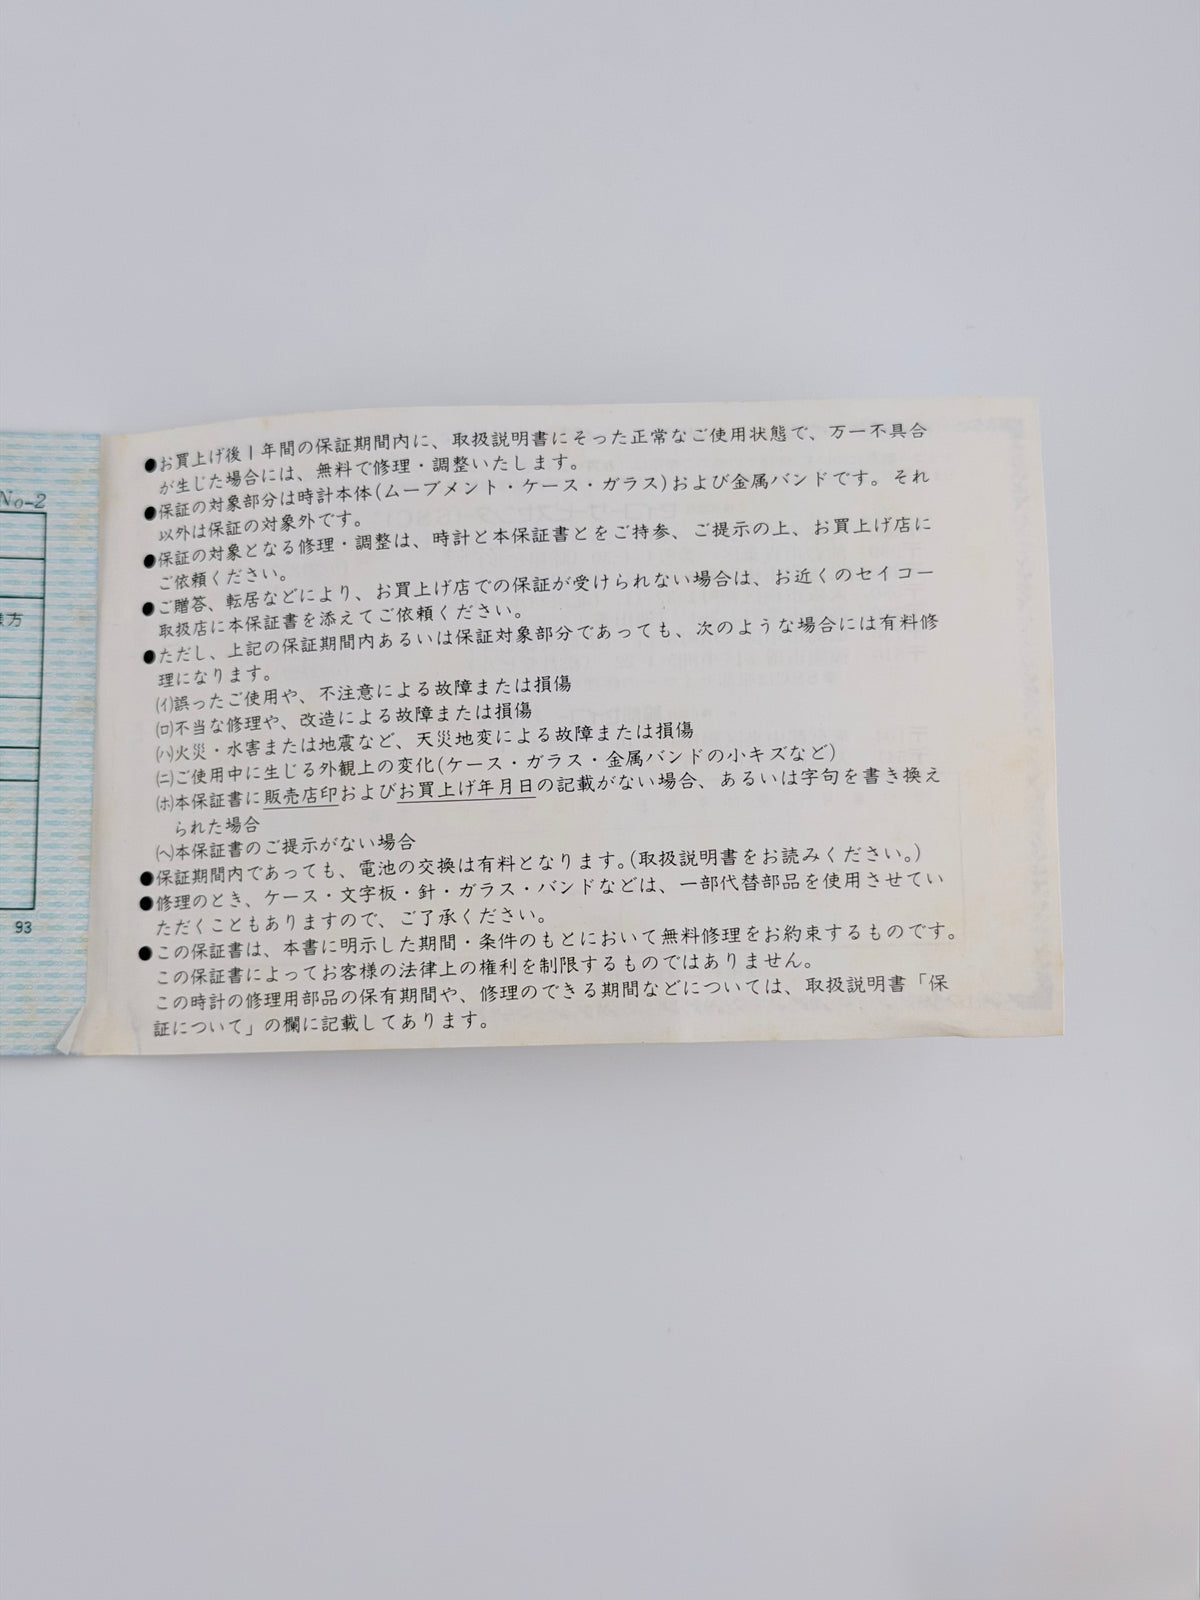 No-2
様方
93
●お買上げ後1年間の保証期間内に、取扱説明書にそった正常なご使用状態で、万一不具合
が生じた場合には、無料で修理・調整いたします。
●保証の対象部分は時計本体(ムーブメント・ケース・ガラス)および金属バンドです。それ
以外は保証の対象外です。
●保証の対象となる修理・調整は、時計と本保証書とをご持参、ご提示の上、お買上げ店に
ご依頼ください。
●ご贈答、転居などにより、お買上げ店での保証が受けられない場合は、お近くのセイコー
取扱店に本保証書を添えてご依頼ください。
●ただし、上記の保証期間内あるいは保証対象部分であっても、次のような場合には有料修
理になります。
(イ)誤ったご使用や、不注意による故障または損傷
(ロ)不当な修理や、改造による故障または損傷
(ハ)火災・水害または地震など、天災地変による故障または損傷
(ニ)ご使用中に生じる外観上の変化(ケース・ガラス・金属バンドの小キズなど)
(ホ)本保証書に販売店印およびお買上げ年月日の記載がない場合、あるいは字句を書き換え
られた場合
(ヘ)本保証書のご提示がない場合
●保証期間内であっても、電池の交換は有料となります。(取扱説明書をお読みください。)
●修理のとき、ケース・文字板・針・ガラス・バンドなどは、一部代替部品を使用させてい
ただくこともありますので、ご了承ください。
●この保証書は、本書に明示した期間・条件のもとにおいて無料修理をお約束するものです。
この保証書によってお客様の法律上の権利を制限するものではありません。
この時計の修理用部品の保有期間や、修理のできる期間などについては、取扱説明書「保
証について」の欄に記載してあります。